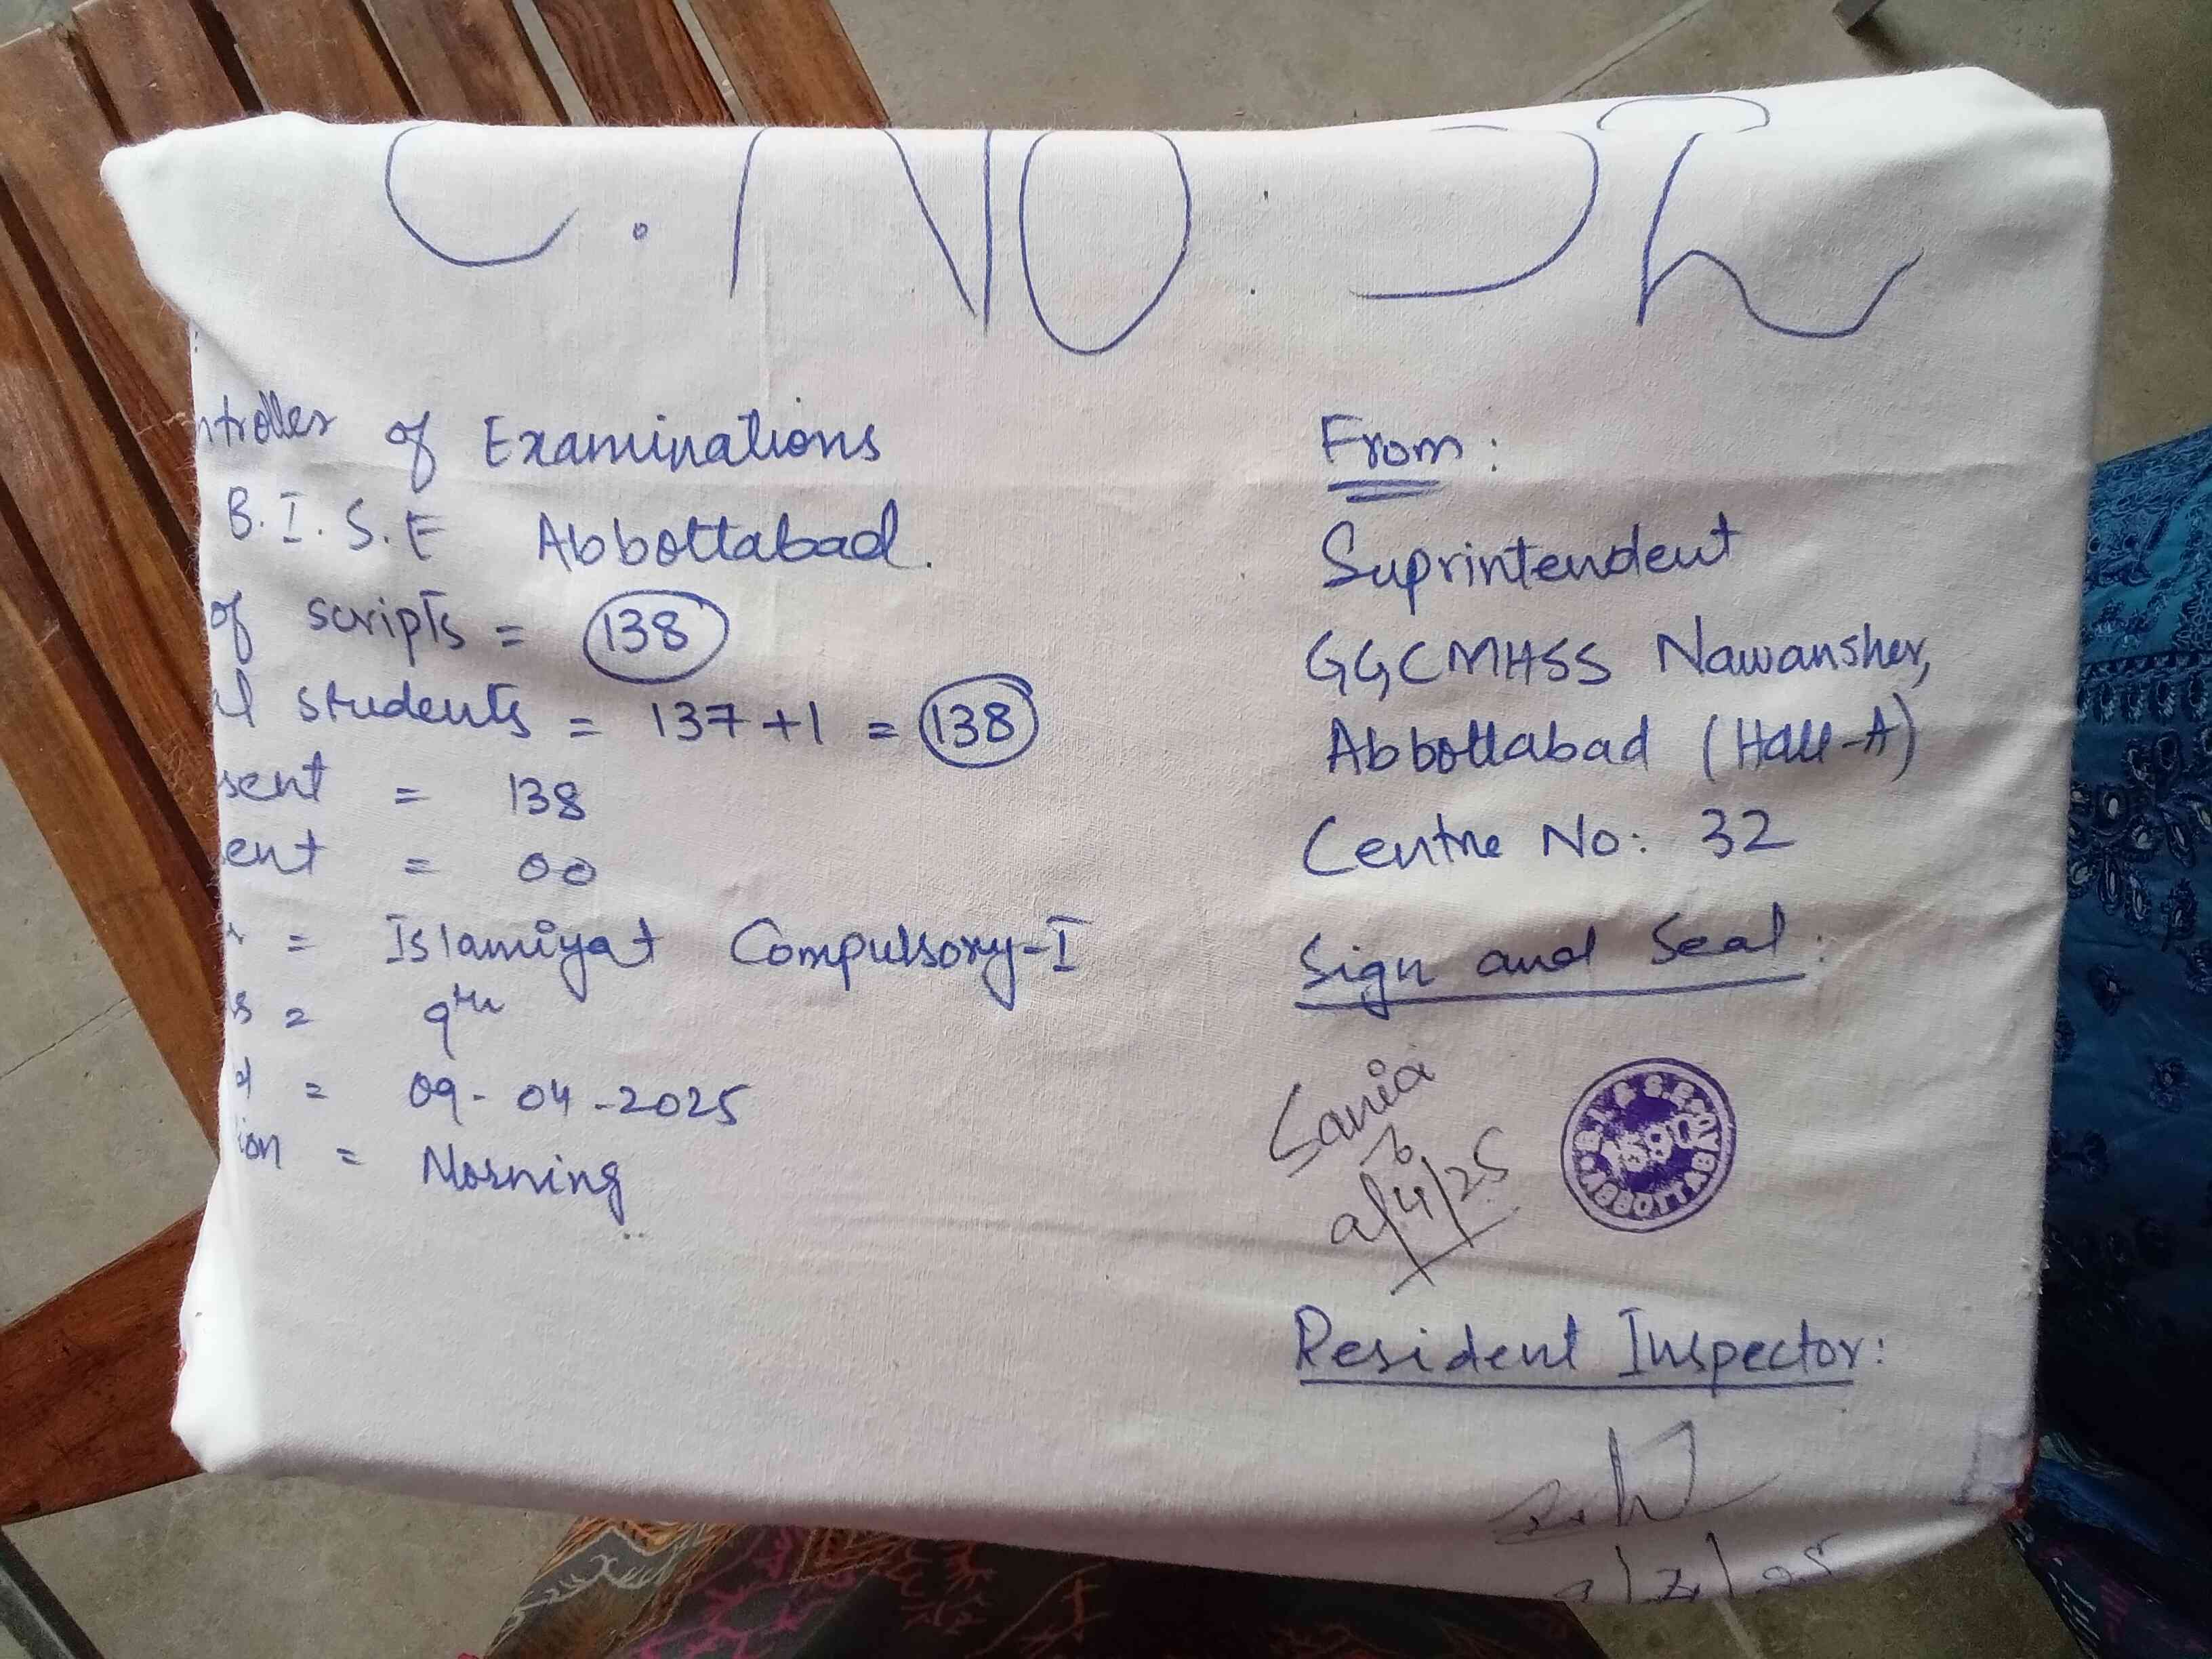 C. NO. 32
ntroller of Examinations
B.I.S.E Abbottabad.
of scripts = 138
al students = 137+1 = 138
sent = 138
ent = 00
r = Islamiyat Compulsory-I
s = 9th
d = 09-04-2025
ion = Morning
From:
Suprintendent
GGCMHSS Nawansher,
Abbottabad (Hall-A)
Centre No: 32
Sign and Seal:
Sania
9/4/25
1580
ABBOTTABAD
Resident Inspector: